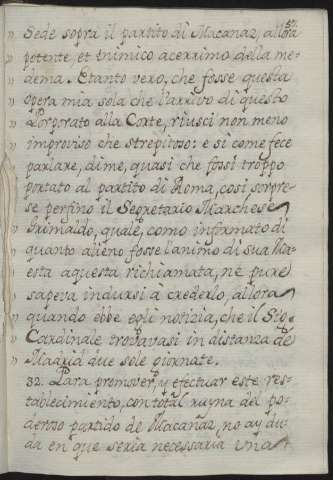 57.
" Sede sopra il partito di Macanaz, allora
" potente, et inimico acerrimo della me-
" dema. Etanto vero, che fosse questa
" opera mia sola che l'arrivo di questo
" Porporato alla Corte, riusci non meno
" improviso che strepitoso: e si come fece
" parlare, di me, quasi che fossi troppo
" portato al partito di Roma, cosi sorpre-
" se perfino il Segretario Marchese
" Grimaldo, quale, como informato di
" quanto alieno fosse l'animo di sua Ma-
" esta aquesta richiamata, nè pure
" sapeva indursi à crederlo, allora
" quando ebbe egli notizia, che il Sig.
" Cardinale trovavasi in distanza de
" Madrid due sole giornate.
32. Para promover, y efectuar este res-
tablecimiento, con total ruyna del po-
deroso partido de Macanaz, no ay du-
da en que seria necessaria una